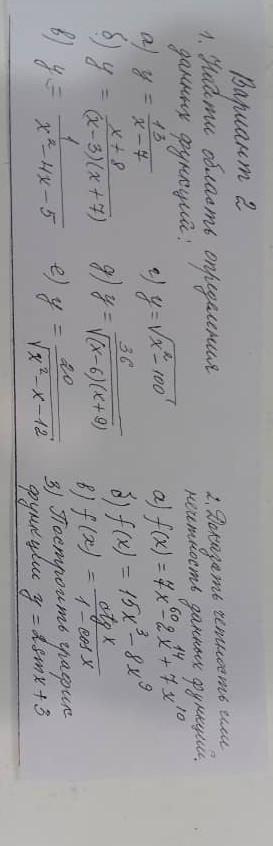 Вариант 2
1. Найти область определения
данных функций:
а) y = 13/(x-7)
б) y = (x+8)/((x-3)(x+7))
в) y = 1/(x²-4x-5)
г) y = √(x²-100)
д) y = 36/√((x-6)(x+9))
е) y = 20/√(x²-x-12)
2. Доказать четность или
нечетность данных функций.
а) f(x) = 4x⁶⁰-2x¹⁴+7x¹⁰
б) f(x) = 15x³-8x⁹
в) f(x) = ctgx/(1-cosx)
3) Построить график
функции y = 2sinx+3